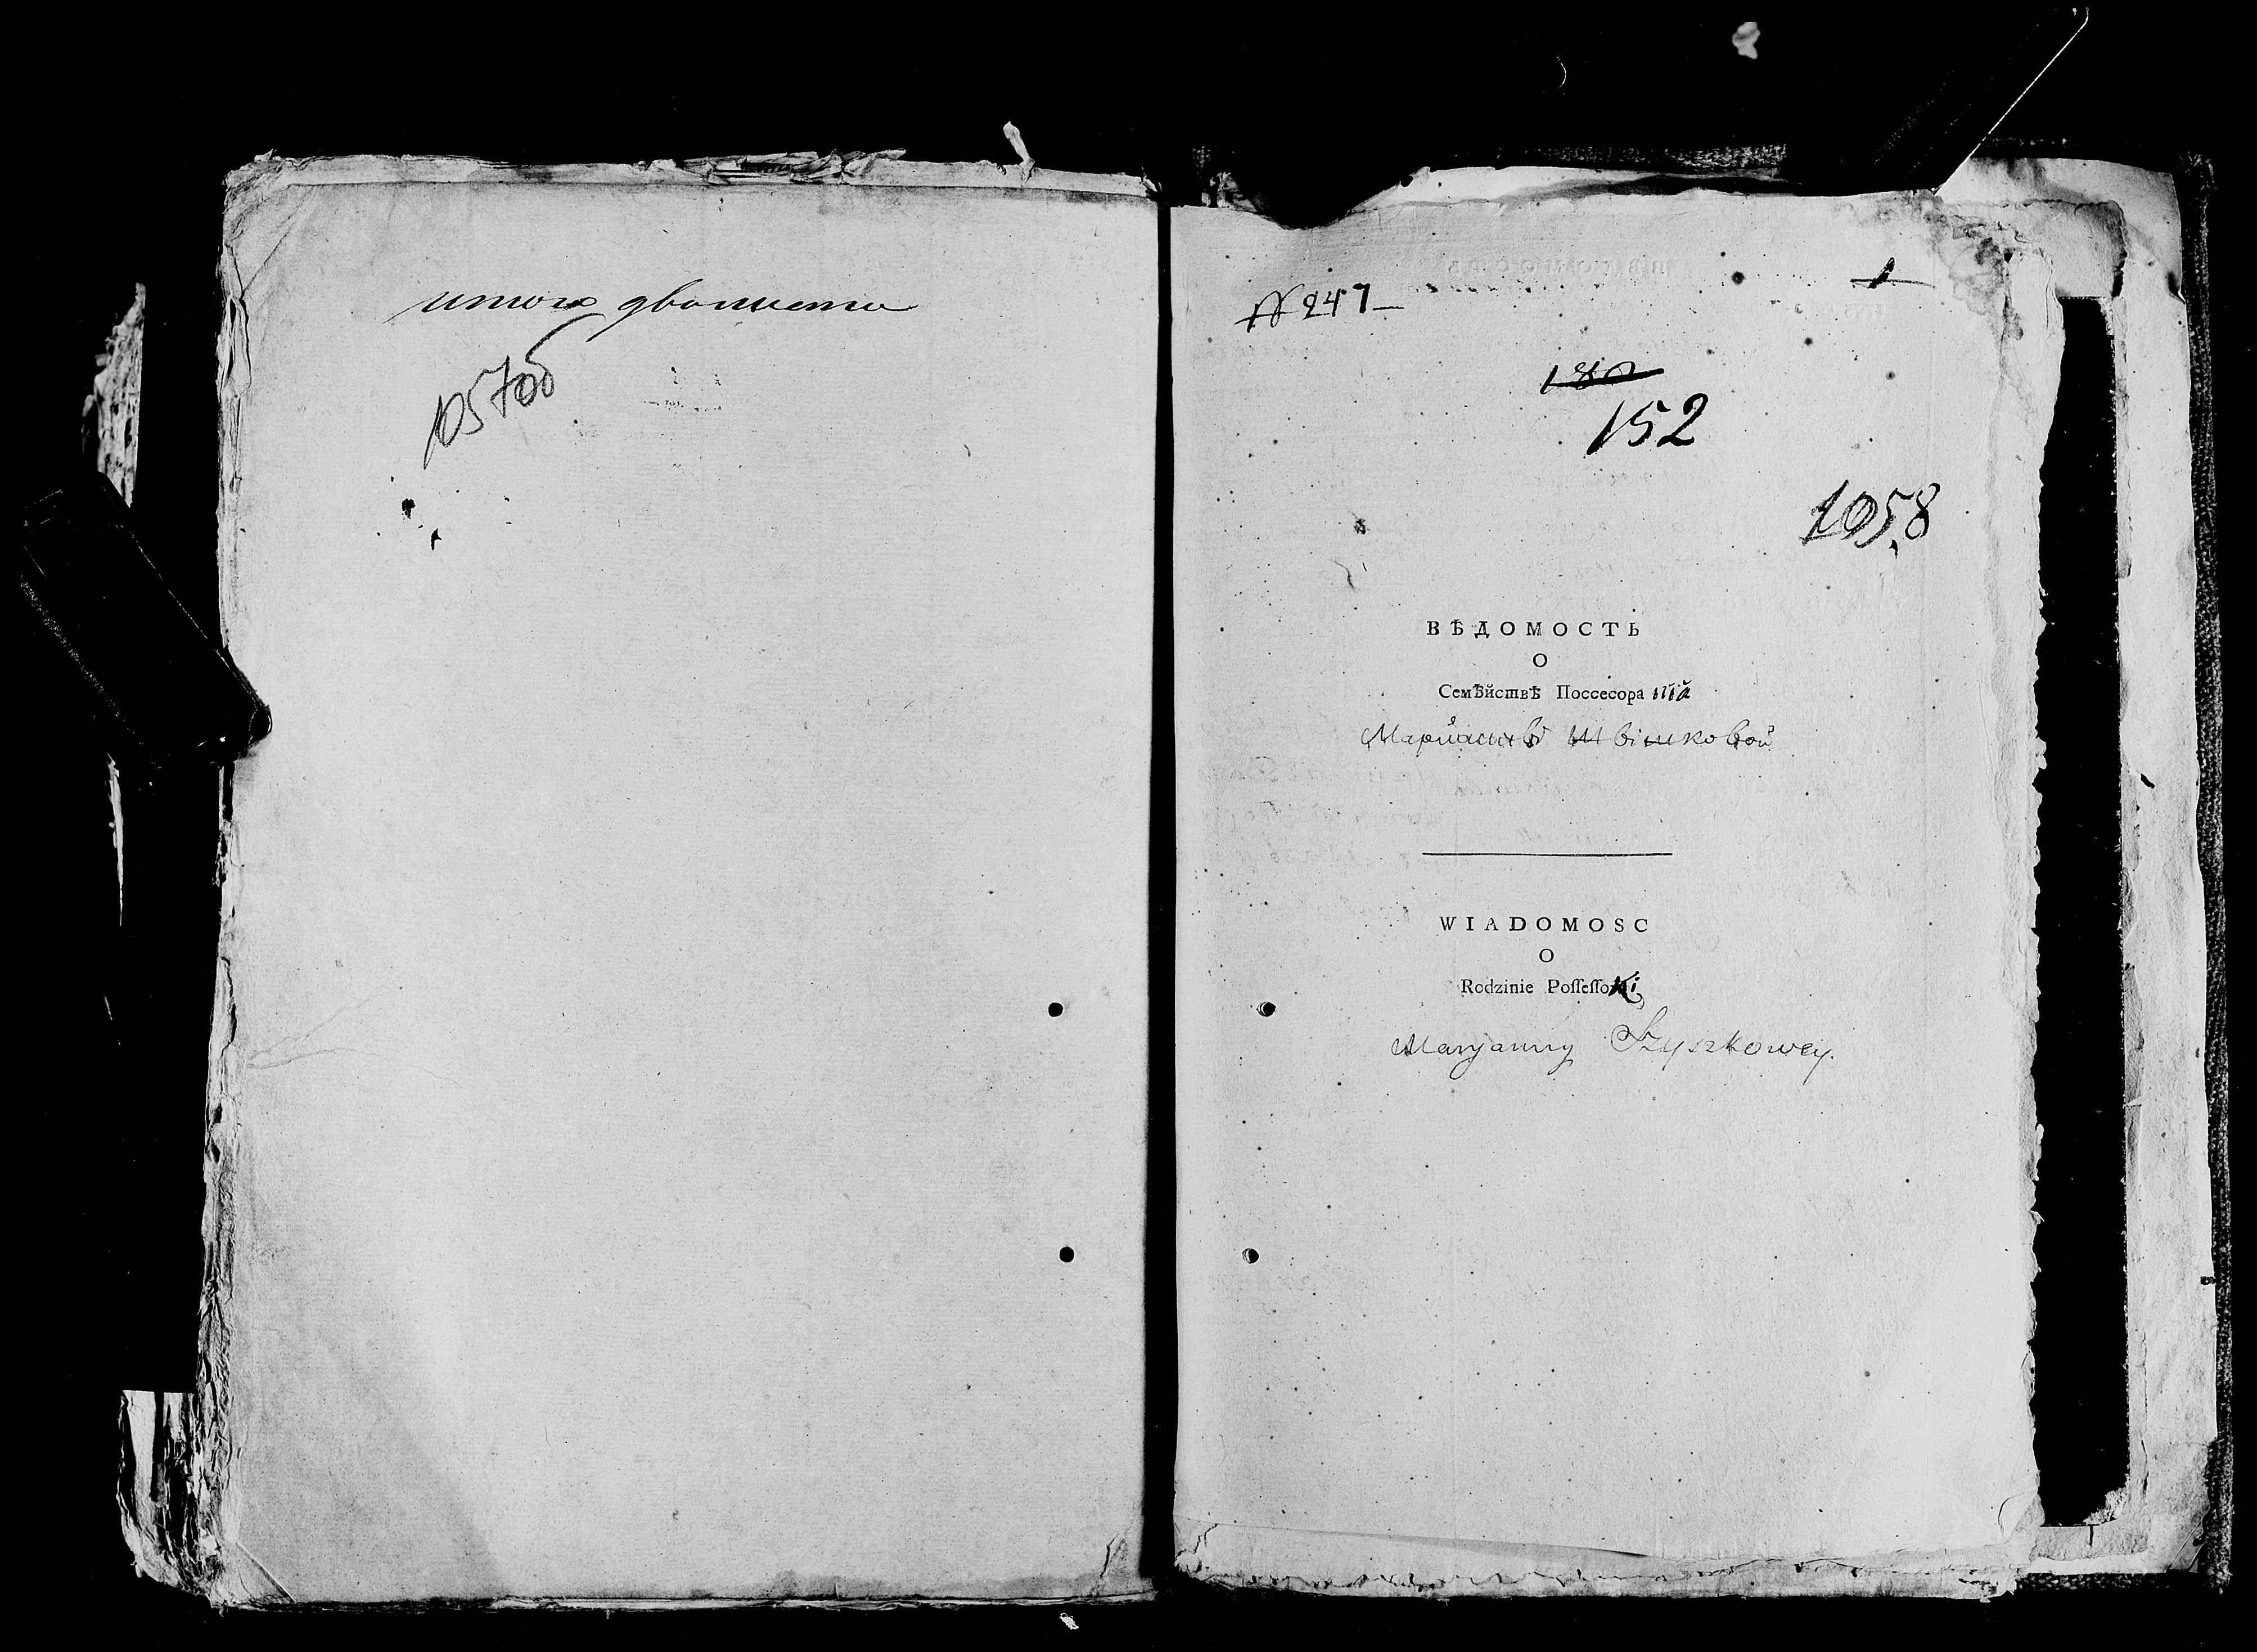 итого два листа
1057об
№ 247
1
152
1058
ВѢДОМОСТЬ
О
Семѣйствѣ Поссесора
Марианны Шишковой
WIADOMOSC
O
Rodzinie Poſſeſſorki
Maryanny Szyszkowey.